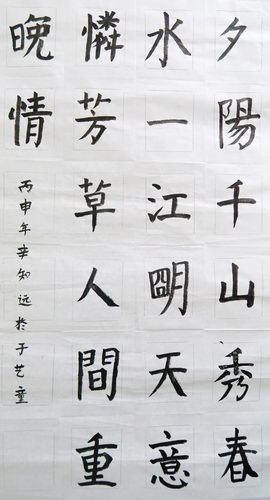 夕陽千山秀春
水一江朙天意
憐芳草人間重
晚情
丙申年幸知远於于艺童